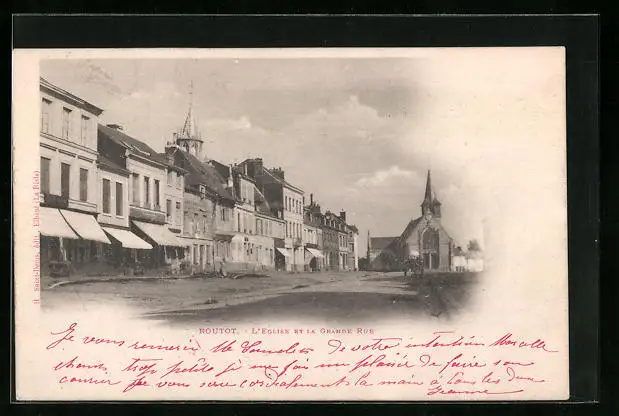 H Saint-Denis, édit., Elbeuf (La Riche)
ROUTOT. - L'EGLISE ET LA GRANDE RUE
Je vous remercie de votre intention
trop petite je me fais un plaisir de faire son
courrier je vous serre cordialement la main à tous les deux
Jeanne